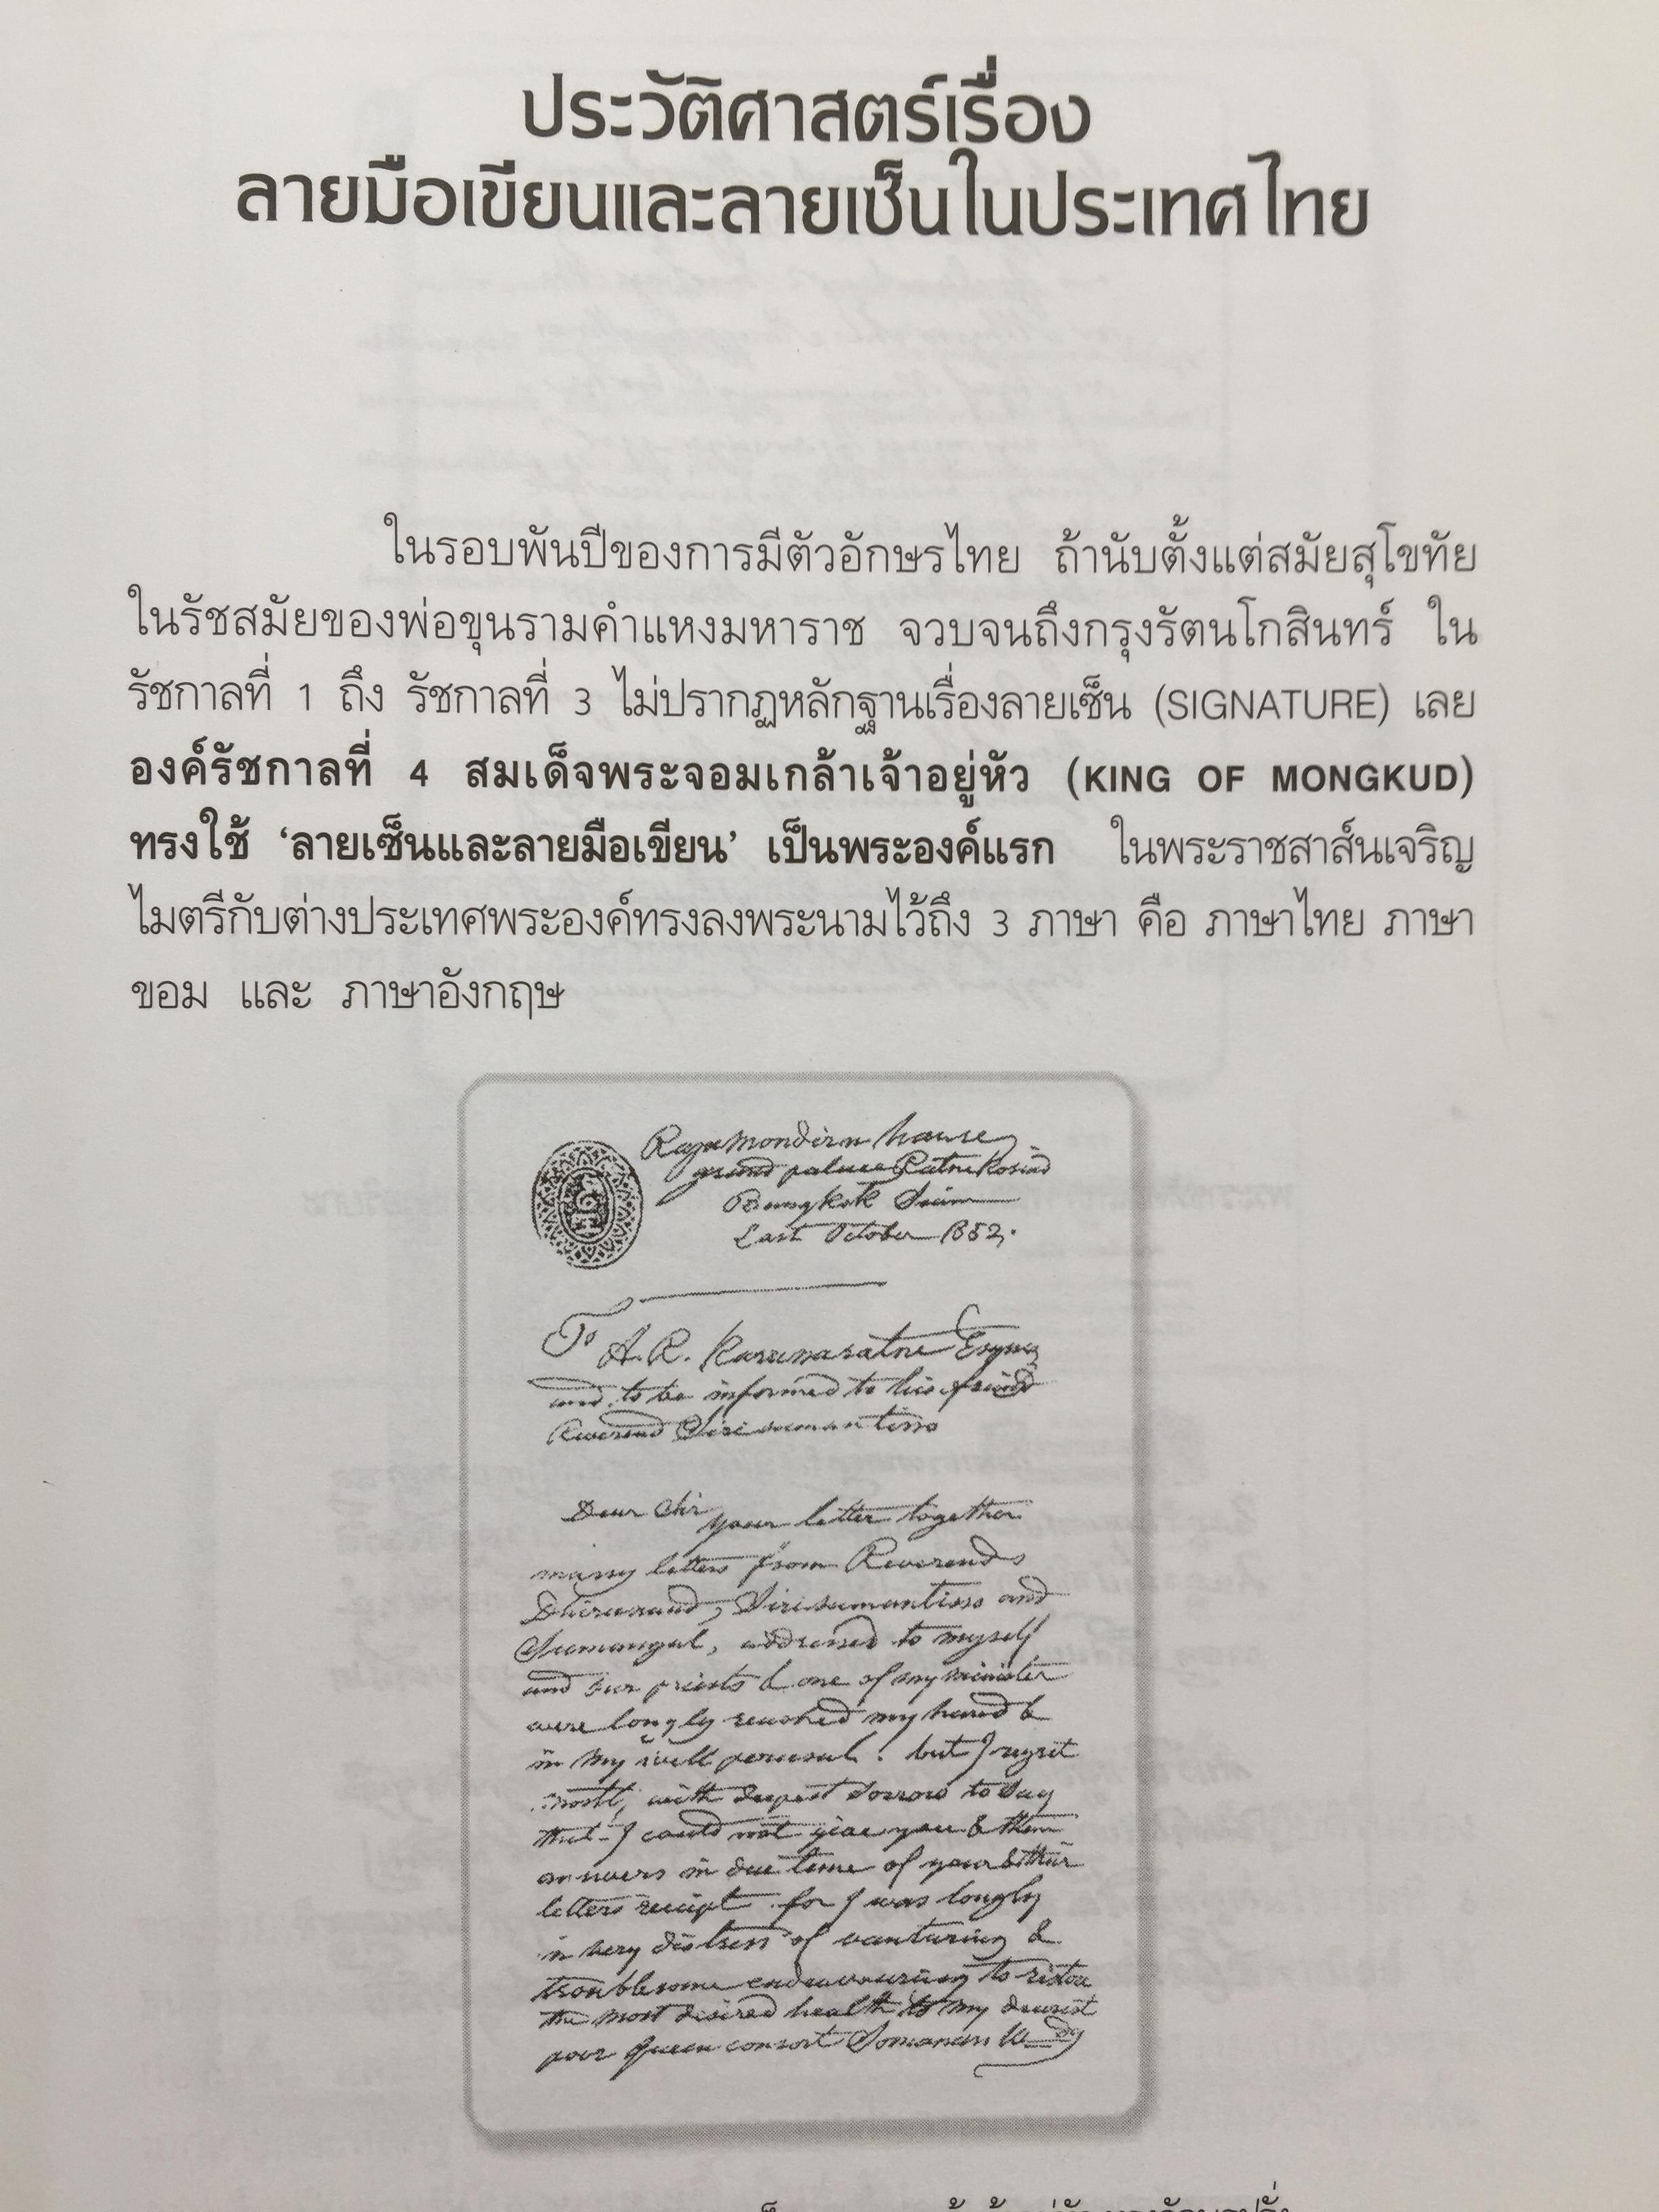 ประวัติศาสตร์เรื่อง
ลายมือเขียนและลายเซ็นในประเทศไทย
ในรอบพันปีของการมีตัวอักษรไทย ถ้านับตั้งแต่สมัยสุโขทัย
ในรัชสมัยของพ่อขุนรามคำแหงมหาราช จวบจนถึงกรุงรัตนโกสินทร์ ใน
รัชกาลที่ 1 ถึง รัชกาลที่ 3 ไม่ปรากฏหลักฐานเรื่องลายเซ็น (SIGNATURE) เลย
องค์รัชกาลที่ 4 สมเด็จพระจอมเกล้าเจ้าอยู่หัว (KING OF MONGKUD)
ทรงใช้ ‘ลายเซ็นและลายมือเขียน’ เป็นพระองค์แรก ในพระราชสาส์นเจริญ
ไมตรีกับต่างประเทศพระองค์ทรงลงพระนามไว้ถึง 3 ภาษา คือ ภาษาไทย ภาษา
ขอม และ ภาษาอังกฤษ
Rajamondirn house
grand palace Ratnekosind
Bangkok Siam
Last October 1852.
To A. R. Karunaratne Esqre
and to be informed to his friend
Reverend Sirisumantisso
Dear Sir your letter together
many letters from Reverends
Dhirananda, Sirisumantisso and
Sumangal, addressed to myself
and our priests & one of my minister
were longly reached my hand &
in my well perusal. but I regret
mostly with deepest sorrow to say
that I could not give you & them
answers in due time of your & their
letters receipt for I was longly
in very distress of venturing &
troublesome endeavouring to restore
the most desired health to my dearest
poor queen consort Somanass